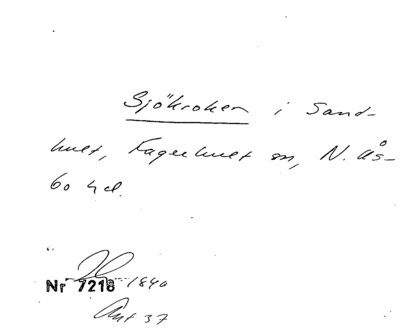 Sjökroken i Sand-
hult, Fagerhult sn, N. Ås-
bo hd.
Nr 7216 1840
Ant 37